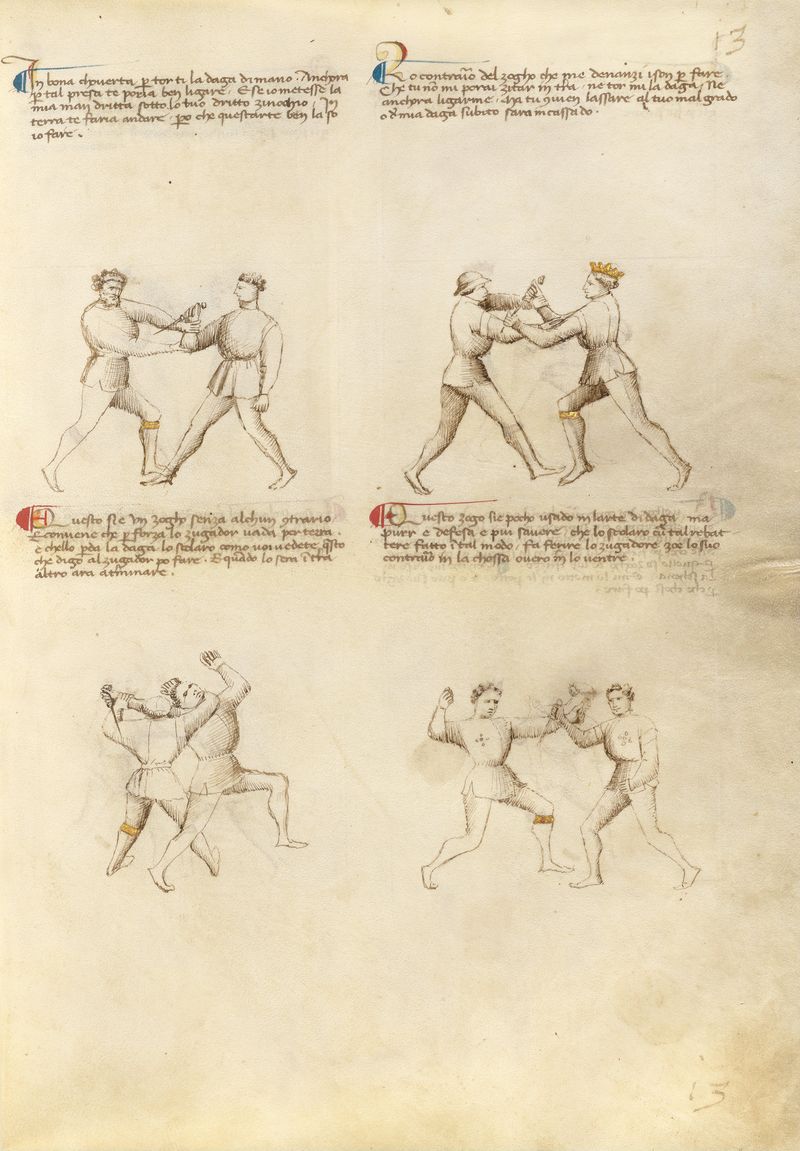 13
In bona choverta per tor ti la daga di mano. Anchora
per tal presa te poria ben ligare. E se io metesse la
mia man dritta sotto lo tuo dritto zinochio. In
terra te faria andare. pero che questarte ben la so
io fare.
Lo contrario del zogho che me denanzi i son per fare.
Che tu non mi porai zitar in terra. ne tor mi la daga. ne
anchora ligarme. ma tu quien lassare al tuo mal grado
o de mia daga subito sarai incassado.
Questo si e un zogho senza alchun contrario
E conviene che per forza lo zugador vada per terra.
e chello perda la daga lo scolaro como voii vedete questo
che digo al zugador po fare. E quando lo sera in terra
altro ara a terminare.
Questo zogo sie pocho usado in larte di daga. ma
purr e defesa e piu savere. che lo scolaro cum tal rebat
tere fatto in tal modo. fa ferire lo zugadore zoe lo suo
contrario in la chossa overo in lo ventre.
13